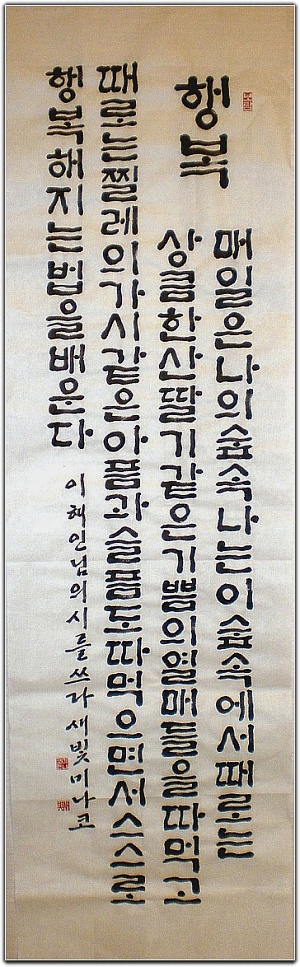 행복
매일은나의숲속나는이숲속에서때로는
상큼한산딸기같은기쁨의열매들을따먹고
때로는찔레의가시같은아픔과슬픔도따먹으면서스스로
행복해지는법을배운다
이해인님의시를쓰다새빛미나코